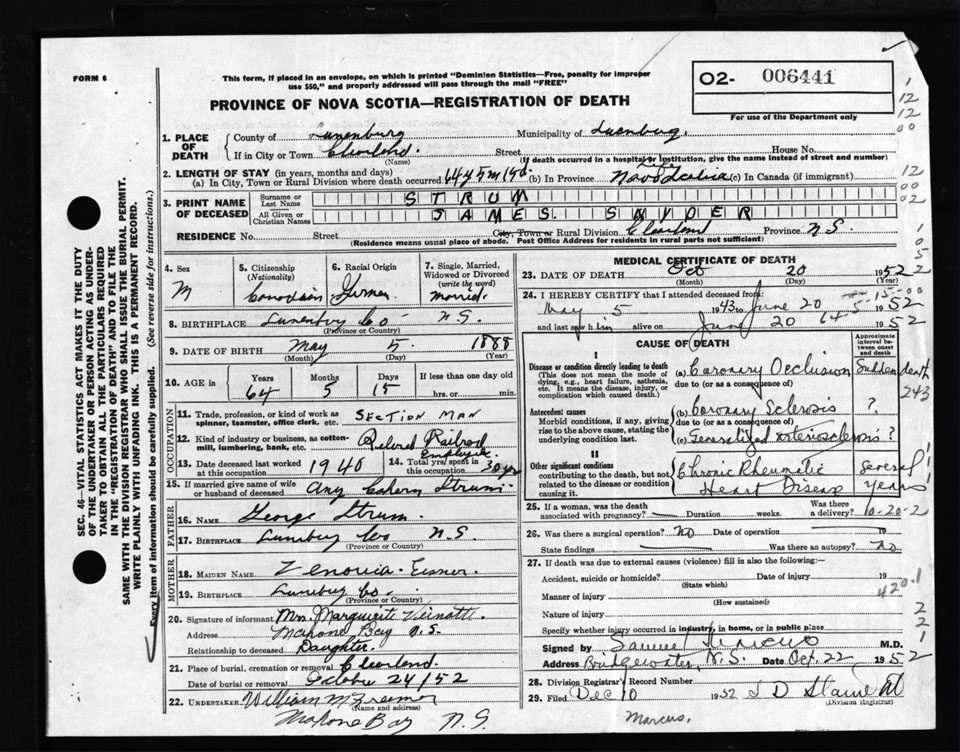 FORM 6
This form, if placed in an envelope, on which is printed "Dominion Statistics—Free, penalty for improper
use $50," and properly addressed will pass through the mail "FREE"
PROVINCE OF NOVA SCOTIA—REGISTRATION OF DEATH
O2- 006441
For use of the Department only
1. PLACE OF DEATH County of Lunenburg Municipality of Luenburg.
If in City or Town Street House No.
(Name) (If death occurred in a hospital or institution, give the name instead of street and number)
2. LENGTH OF STAY (in years, months and days)
(a) In City, Town or Rural Division where death occurred 64y 5m 15d. (b) In Province Life Nova Scotia (c) In Canada (if immigrant)
3. PRINT NAME OF DECEASED Surname or Last Name STRUM
All Given or Christian Names JAMES. SNYDER
RESIDENCE No. Street City, Town or Rural Division Province N.S.
(Residence means usual place of abode. Post Office Address for residents in rural parts not sufficient)
4. Sex M
5. Citizenship (Nationality) Canadian
6. Racial Origin German
7. Single, Married, Widowed or Divorced (write the word) Married.
8. BIRTHPLACE Co N.S.
(Province or Country)
9. DATE OF BIRTH May 5. 1888
(Month) (Day) (Year)
10. AGE in Years Months Days If less than one day old
64 5 15 hrs. or min.
OCCUPATION
11. Trade, profession, or kind of work as spinner, teamster, office clerk, etc. SECTION MAN
12. Kind of industry or business, as cotton-mill, lumbering, bank, etc. Railroad Employee
13. Date deceased last worked at this occupation 1940 14. Total yrs. spent in this occupation 30 yrs
15. If married give name of wife or husband of deceased Strum
FATHER
16. NAME George Strum
17. BIRTHPLACE Co N.S.
(Province or Country)
MOTHER
18. MAIDEN NAME Eisner
19. BIRTHPLACE Co
(Province or Country)
20. Signature of informant Mrs. Marguerite
Address Mahone Bay N.S.
Relationship to deceased Daughter.
21. Place of burial, cremation or removal
Date of burial or removal October 24/52
22. UNDERTAKER William
(Name and address)
Mahone Bay N.S.
MEDICAL CERTIFICATE OF DEATH
23. DATE OF DEATH Oct 20 1952
(Month) (Day) (Year)
24. I HEREBY CERTIFY that I attended deceased from
May 5 1943 to June 20 1952
and last saw him alive on June 20 1952
CAUSE OF DEATH
Approximate interval between onset and death
I
Disease or condition directly leading to death (a) Coronary Occlusion Sudden death
(This does not mean the mode of dying, e.g., heart failure, asthenia, etc. It means the disease, injury, or complication which caused death.)
due to (or as a consequence of)
Antecedent causes (b) Coronary Sclerosis ?
Morbid conditions, if any, giving rise to the above cause, stating the underlying condition last.
due to (or as a consequence of)
(c) Generalized arteriosclerosis ?
II
Other significant conditions contributing to the death, but not related to the disease or condition causing it.
Chronic Rheumatic Heart Disease Several years
243
25. If a woman, was the death associated with pregnancy? Duration weeks. Was there a delivery?
10-20-2
26. Was there a surgical operation? No Date of operation 19
State findings Was there an autopsy? No
27. If death was due to external causes (violence) fill in also the following:
Accident, suicide or homicide? Date of injury 19
(State which)
420.1
Manner of injury
(How sustained)
Nature of injury
Specify whether injury occurred in industry, in home, or in public place
Signed by M.D.
Address Bridgewater, N.S. Date Oct. 22, 1952
28. Division Registrar's Record Number
29. Filed Dec 10 1952
(Division Registrar)
Marcus.
SEC. 46—VITAL STATISTICS ACT MAKES IT THE DUTY
OF THE UNDERTAKER OR PERSON ACTING AS UNDER-
TAKER TO OBTAIN ALL THE PARTICULARS REQUIRED
IN THE "REGISTRATION OF DEATH" AND TO FILE THE
SAME WITH THE DIVISION REGISTRAR WHO SHALL ISSUE THE BURIAL PERMIT.
WRITE PLAINLY WITH UNFADING INK. THIS IS A PERMANENT RECORD.
Every item of information should be carefully supplied. (See reverse side for instructions.)